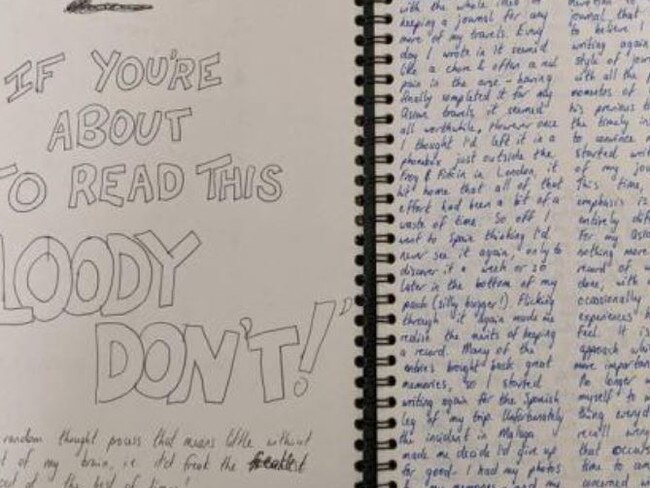 IF YOU'RE
ABOUT
TO READ THIS
LOODY
DON'T!
random thought process that means little without
of my brain, i.e it'd freak the freakiest
out of the best of times!
with the whole idea of
keeping a journal for any
more of my travels. Every
day I wrote in it seemed
like a chore & often a real
pain in the arse - having
finally completed it for my
Asian travels it seemed
all worthwhile, However once
I thought I'd left it in a
phonebox just outside the
Frog & Firkin in London, it
hit home that all of that
effort had been a bit of a
waste of time. So off I
went to Spain thinking I'd
never see it again, only to
discover it a week or so
later in the bottom of my
pack (silly bugger!). Flicking
through it again made me
realise the merits of keeping
a record. Many of the
entries brought back great
memories, so I started
writing again for the Spanish
leg of my trip. Unfortunately
the incident in Malaga
made me decide I'd give up
for good - I had my photos
& my memories - and my
journal that
to believe I
writing again
style of jour
with all the
moments of
his previous
the timely
to convince
started writ
of my jou
This time,
emphasis is
entirely diff
For my Asia
nothing more
record of w
done, with
occasionally
experiences
feel. It is
approach whi
more importan
No longer
myself to w
thing everyd
recall
that occurs
time to
concerned